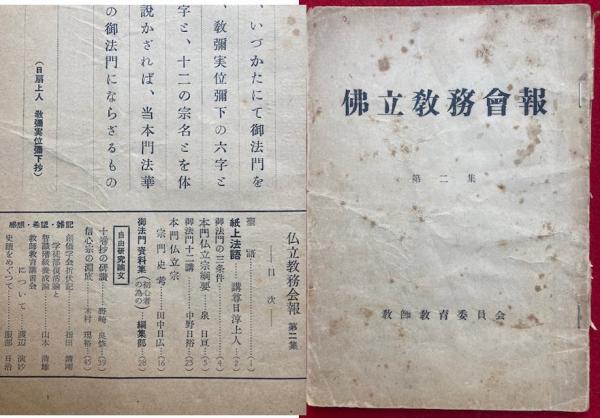 、いづかたにて御法門を
、教彌実位彌下の六字と
字と、十二の宗名とを体
説かざれば、当本門法華
の御法門にならざるもの
（日扇上人　教彌実位彌下抄）
仏立教務会報　第二集
―目次―
聖語……(1)
紙上法語……講尊日淳上人…(2)
御法門の三条件……(4)
本門仏立宗綱要……泉日亘…(5)
御法門十二講……中野日裕…(25)
本門仏立宗
宗門史考……田中日広…(16)
御法門資料集(初心者の為の)……編集部…(28)
自由研究論文
十巻抄の研讃……野崎
信心宗の淵底……木村現裕…(45)
感想・希望・雑記
創価学会折伏記……指田清剛
学徒部復活論と
智識階級養成論……山本清雄
教師教育講習会
について……渡辺
史蹟をめぐって……服部日治
佛立教務會報
第二集
教師教育委員会